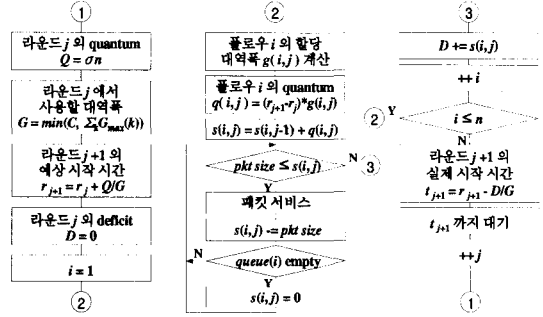 ①
라운드 j 의 quantum
Q = σn
라운드 j 에서
사용할 대역폭
G = min(C, Σ_k G_max(k))
라운드 j+1 의
예상 시작 시간
r_{j+1} = r_j + Q/G
라운드 j 의 deficit
D = 0
i = 1
②
②
플로우 i 의 할당
대역폭 g(i,j) 계산
플로우 i 의 quantum
q(i,j) = (r_{j+1}-r_j)*g(i,j)
s(i,j) = s(i,j-1) + q(i,j)
pkt size ≤ s(i,j)
N
③
Y
패킷 서비스
s(i,j) -= pkt size
N
queue(i) empty
Y
s(i,j) = 0
③
D += s(i,j)
++i
②
Y
i ≤ n
N
라운드 j+1 의
실제 시작 시간
t_{j+1} = r_{j+1} - D/G
t_{j+1} 까지 대기
++j
①